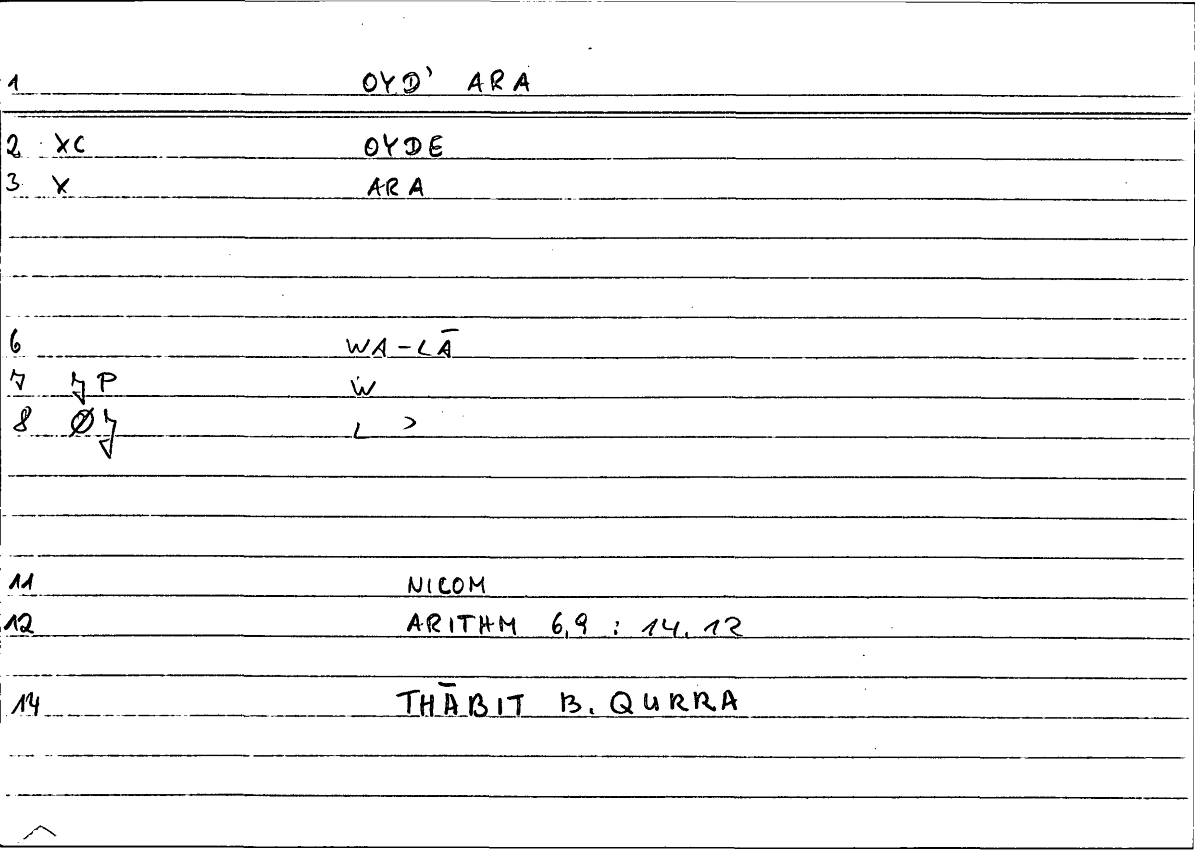 1 OYD' ARA
2 XC OYDE
3 X ARA
6 WA-LĀ
7 P W
8 Ø L >
11 NICOM
12 ARITHM 6,9 : 14.12
14 THĀBIT B. QURRA